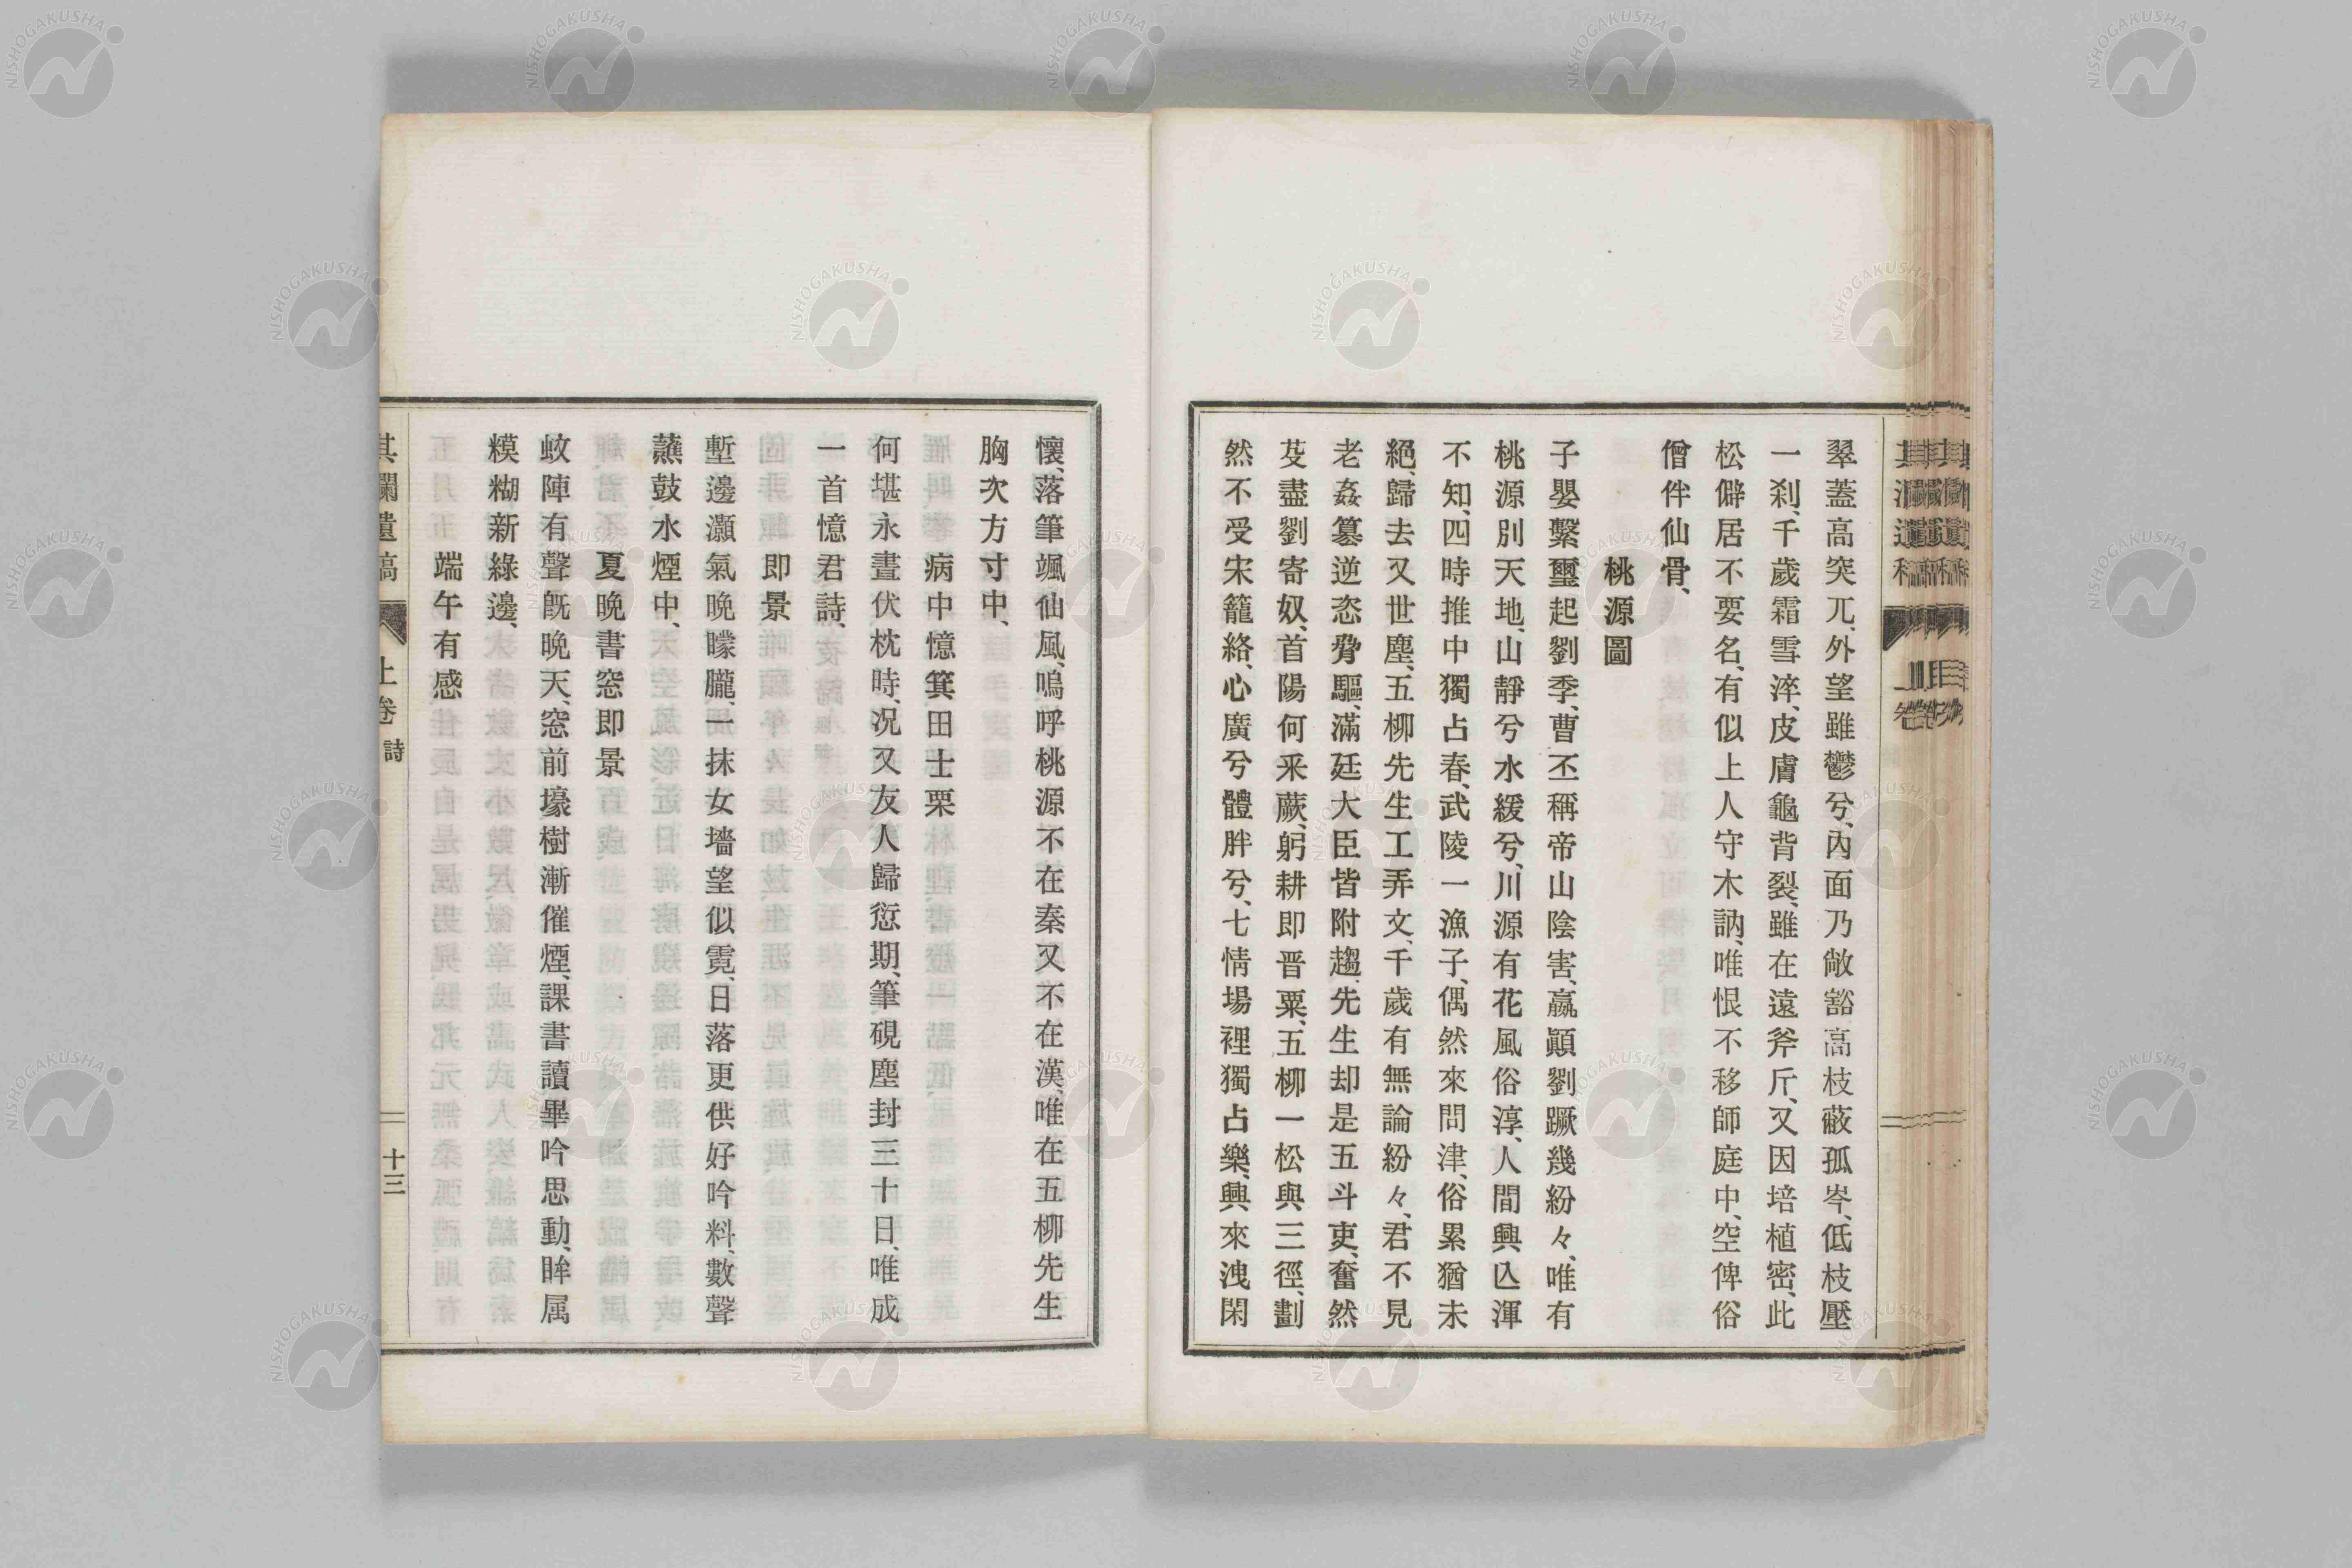 翠蓋高突兀、外望雖鬱兮、內面乃敞豁、高枝蔽孤岑、低枝壓
一刹、千歲霜雪淬、皮膚龜背裂、雖在遠斧斤、又因培植密、此
松僻居不要名、有似上人守木訥、唯恨不移師庭中、空俾俗
僧伴仙骨、
桃源圖
子嬰繫璽起劉季、曹丕稱帝山陰害、嬴顚劉蹶幾紛々、唯有
桃源別天地、山靜兮水緩兮、川源有花風俗淳、人間興亾渾
不知、四時推中獨占春、武陵一漁子、偶然來問津、俗累猶未
絕、歸去又世塵、五柳先生工弄文、千歲有無論紛々、君不見
老姦簒逆恣脅驅、滿廷大臣皆附趨、先生却是五斗吏、奮然
芟盡劉寄奴、首陽何采蕨、躬耕即晋粟、五柳一松與三徑、劃
然不受宋籠絡、心廣兮體胖兮、七情場裡獨占樂、興來洩閑
懷、落筆颯仙風、嗚呼桃源不在秦又不在漢、唯在五柳先生
胸次方寸中、
病中憶箕田士栗
何堪永晝伏枕時、况又友人歸愆期、筆硯塵封三十日、唯成
一首憶君詩、
即景
塹邊灝氣晚矇朧、一抹女墻望似霓、日落更供好吟料、數聲
蕪鼓水煙中、
夏晚書窓即景
蚊陣有聲旣晚天、窓前壕樹漸催煙、課書讀畢吟思動、眸属
糢糊新綠邊、
端午有感
其瀾遺稿
上卷 詩
十三